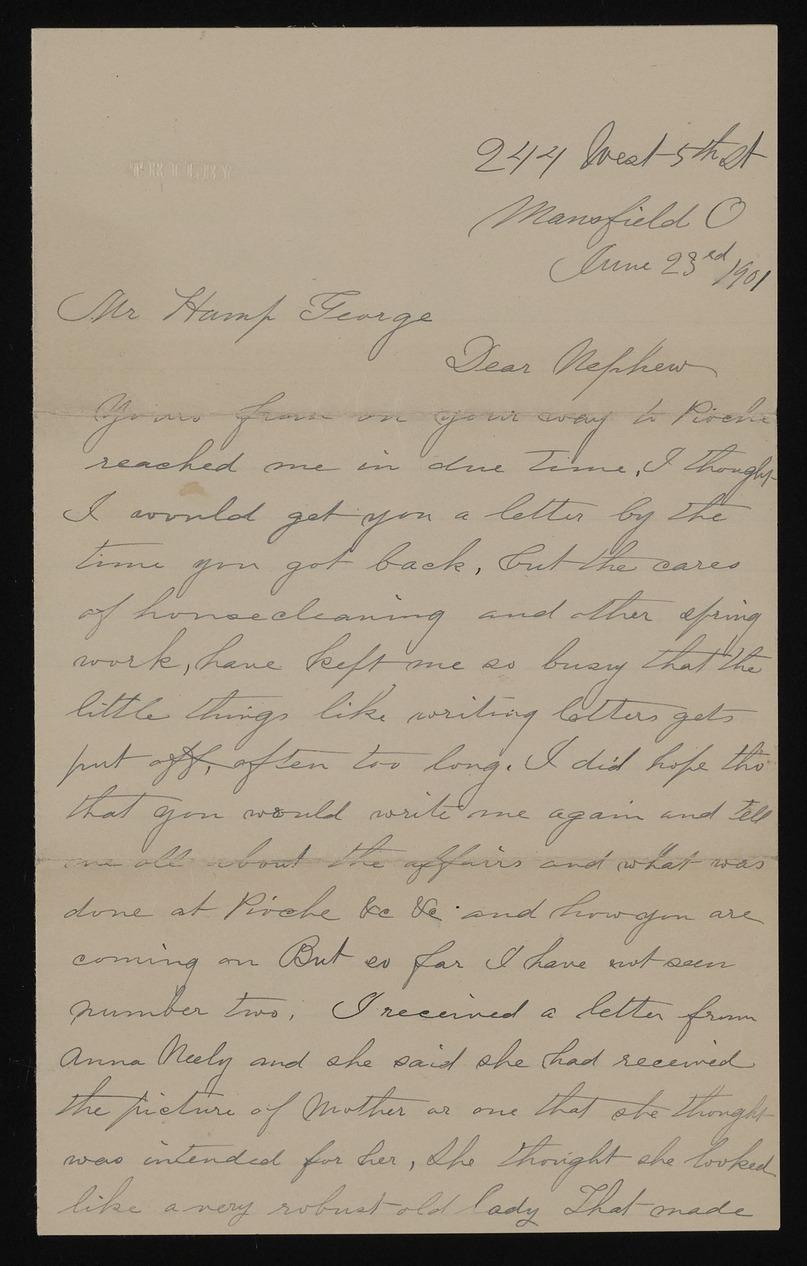 244 West 5th St
Mansfield O
June 23rd 1901
Mr Hamp George
Dear Nephew
Yours from on your way to Pioche
reached me in due time, I thought
I would get you a letter by the
time you got back, but the cares
of housecleaning and other spring
work, have kept me so busy that the
little things like writing letters gets
put off, often too long. I did hope tho
that you would write me again and tell
me all about the affairs and what was
done at Pioche &c &c and how you are
coming on But so far I have not seen
number two. I received a letter from
Anna Neely and she said she had received
the picture of Mother or one that she thought
was intended for her, She thought she looked
like a very robust old lady That made